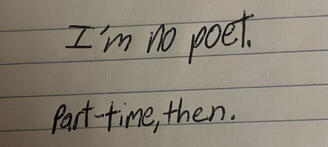 I'm no poet.
Part-time, then.